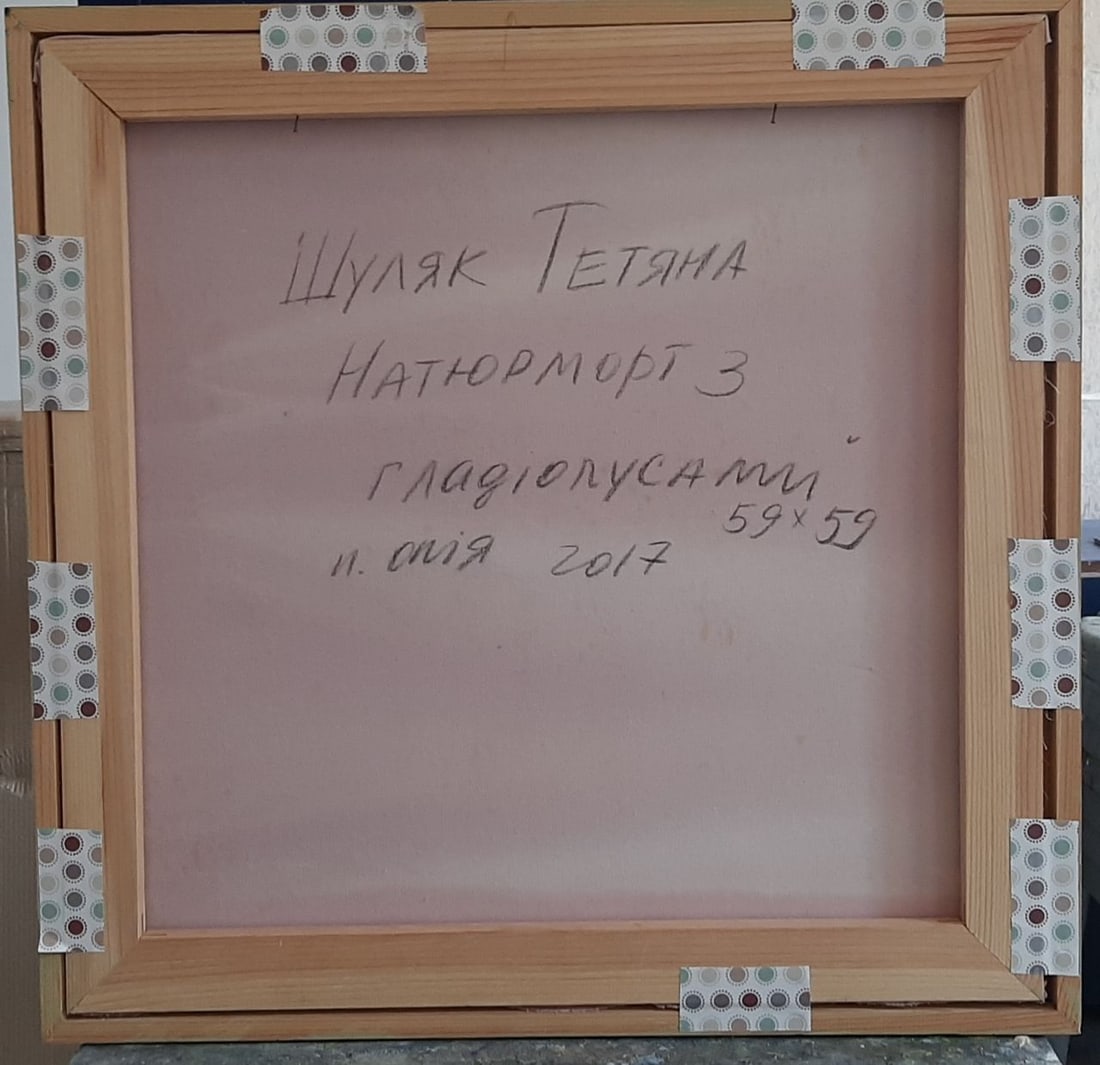 Шуляк Тетяна
Натюрморт з
гладіолусами
59×59
п. олія 2017